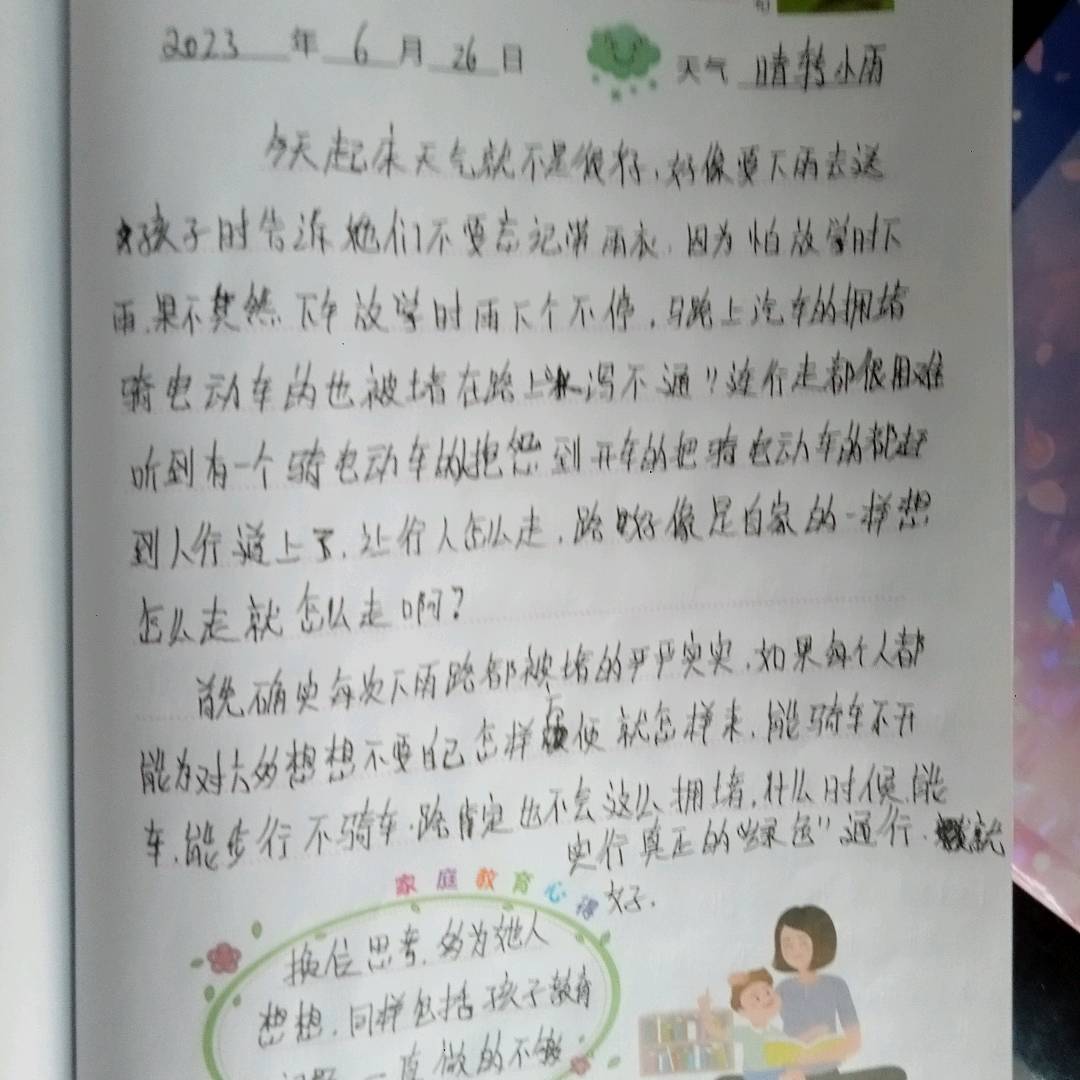 2023 年 6 月 26 日
天气 晴转小雨
今天起来天气就不是很好,好像要下雨去送
孩子时告诉她们不要忘记带雨衣,因为怕放学时下
雨,果不其然下午放学时雨下个不停,马路上汽车的拥堵
骑电动车的也被堵在路上水泻不通"连行走都很困难
听到有一个骑电动车的抱怨到开车的把骑电动车的都赶
到人行道上了,让行人怎么走,路好像是自家的一样想
怎么走就怎么走啊?
首先确实每次下雨路都被堵的严严实实,如果每个人都
能为对方多想想不要自己怎样方便就怎样来,能骑车不开
车,能步行不骑车,路肯定也不会这么拥堵,什么时候能
实行真正的"绿色"通行,就
好.
家庭教育心得
换位思考,多为她人
想想,同样包括孩子教育
一直做的不够